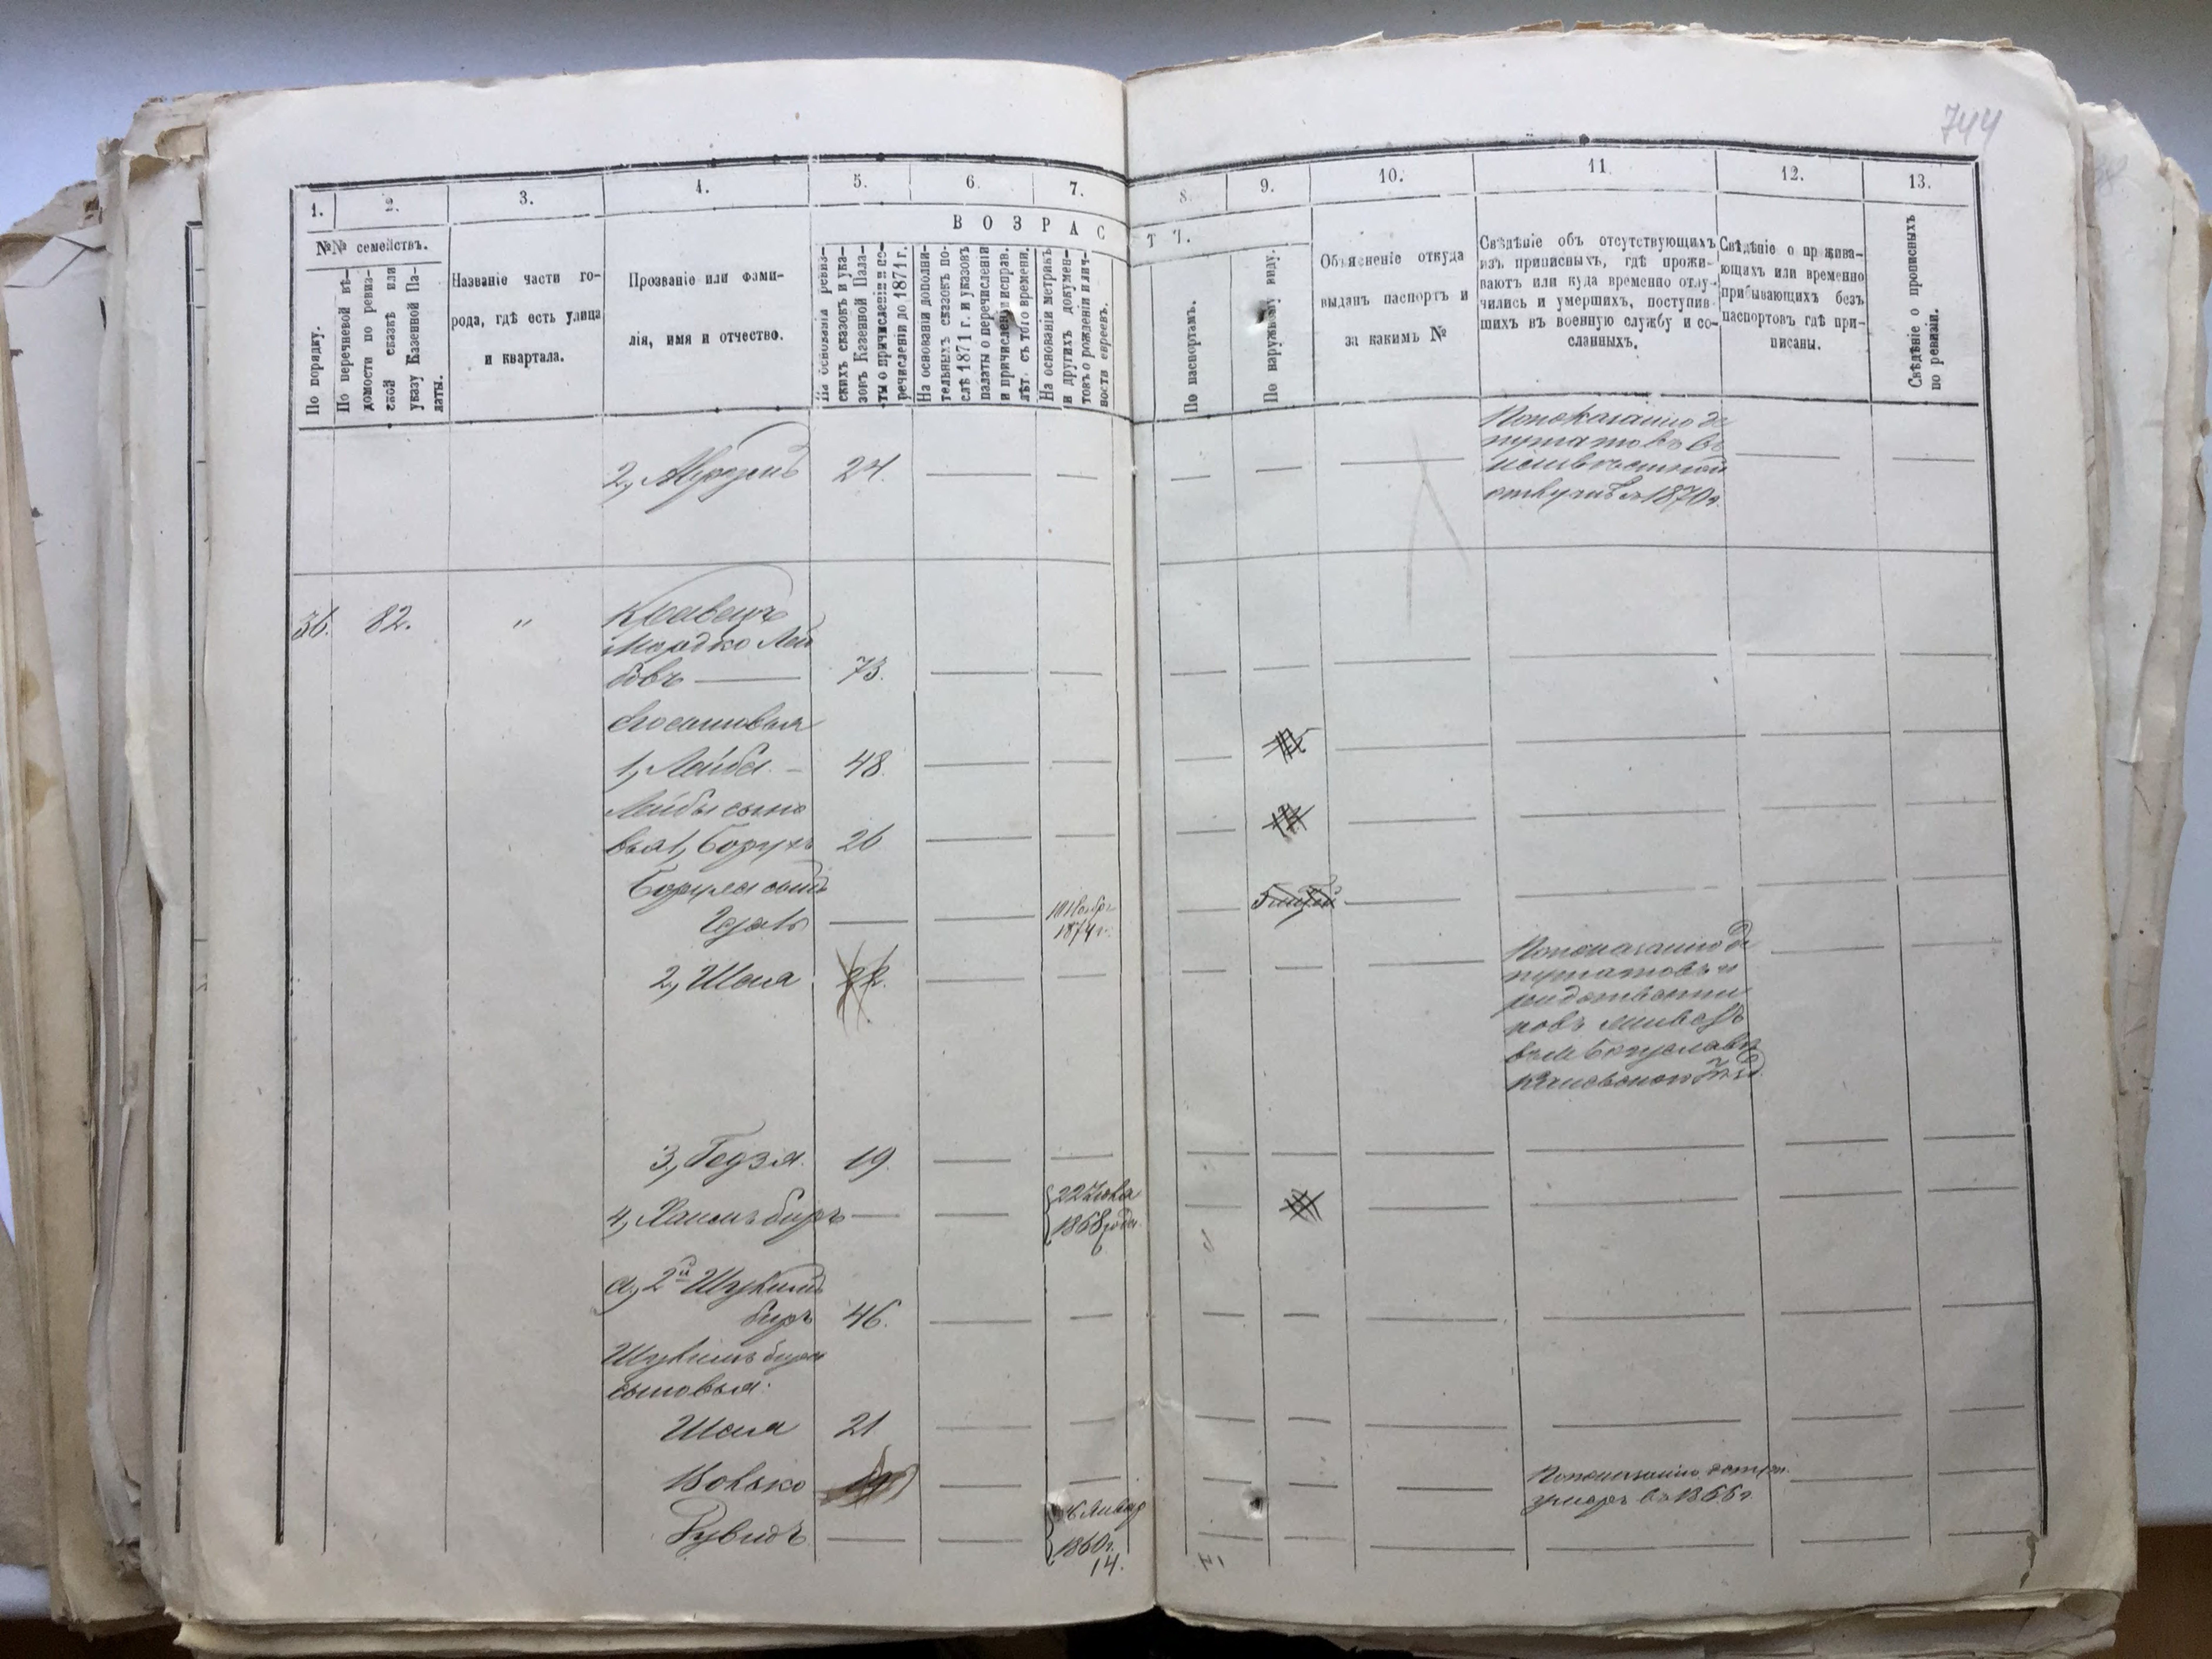 744
1.
2.
3.
4.
5.
6.
7.
8.
9.
10.
11.
12.
13.
№№ семействъ.
В О З Р А С Т Ъ.
По порядку.
По перечневой вѣ-
домости по ревиз-
ской сказкѣ или
указу Казенной Па-
латы.
Названіе части го-
рода, гдѣ есть улица
и квартала.
Прозваніе или фами-
лія, имя и отчество.
На основаніи ревиз-
скихъ сказокъ и ука-
зовъ Казенной Пала-
ты о причисленіи и пе-
речисленіи до 1871 г.
На основаніи дополни-
тельныхъ сказокъ по-
слѣ 1871 г. и указовъ
палаты о перечисленіи
и причисленіи исправ.
лѣт. съ того времени.
На основаніи метрикъ
и другихъ докумен-
товъ о рожденіи и лич-
ности евреевъ.
По паспортамъ.
По наружному виду.
Объясненіе откуда
выданъ паспортъ и
за какимъ №
Свѣдѣніе объ отсутствующихъ
изъ приписныхъ, гдѣ прожи-
ваютъ или куда временно отлу-
чились и умершихъ, поступив-
шихъ въ военную службу и со-
сланныхъ.
Свѣдѣніе о прожива-
ющихъ или временно
прибывающихъ безъ
паспортовъ гдѣ при-
писаны.
Свѣдѣніе о прописныхъ
по ревизіи.
2, 24.
По показанію де
путатовъ въ
отлучкѣ съ 1870 г.
36. 82. " Кравецъ
Мордко Лей
бовъ — 73.
сыновья
1, Лейба. — 48.
Лейбы сыно
вья 1, Борухъ 26
Боруха сынъ
10 Ноября
1874 г.
2, Шая 22.
По показанію де
путатовъ и
родственни
ковъ
вым Богуславѣ
Каневскаго уѣзд.
3, Гедзія. 19.
4, Хаимъ беръ — 22 Іюля
1868 года
а, 2й
беръ 46.
сыновья:
Шая 21
Волько 19
По показанію депут.
умеръ въ 1866 г.
Рувинъ — 16 Январ
1860 г.
14.